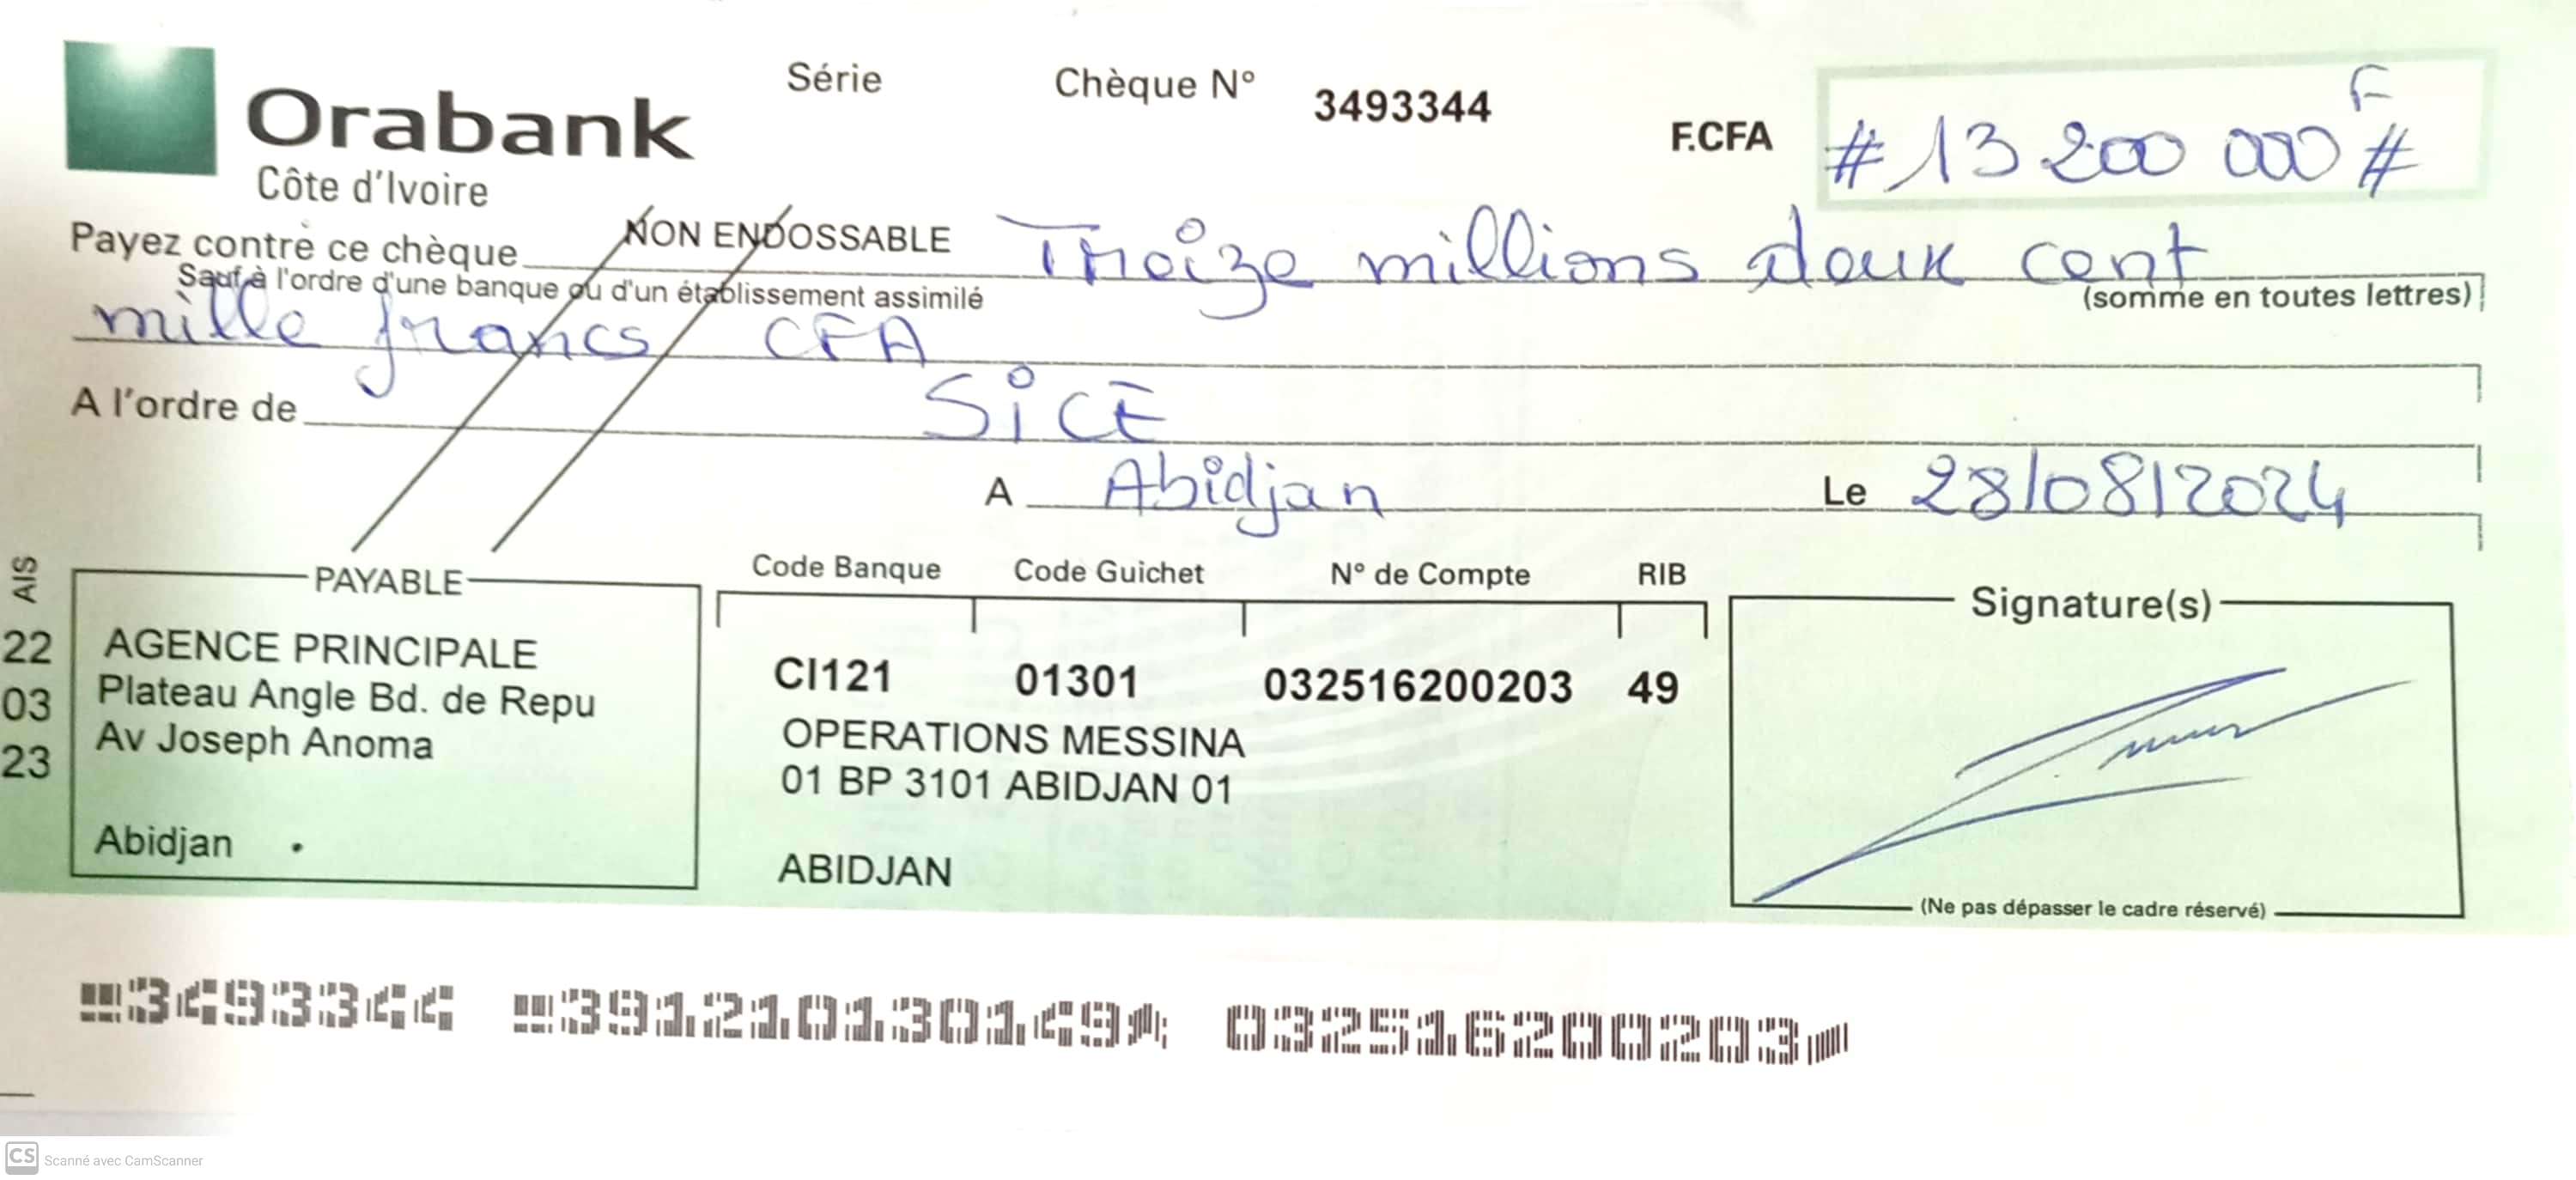 Orabank
Côte d'Ivoire
Série
Chèque N° 3493344
F.CFA # 13 200 000 F #
Payez contre ce chèque NON ENDOSSABLE Treize millions deux cent
Sauf à l'ordre d'une banque ou d'un établissement assimilé
(somme en toutes lettres)
mille francs CFA
A l'ordre de SiCE
A Abidjan Le 28/08/2024
AIS
22
03
23
PAYABLE
AGENCE PRINCIPALE
Plateau Angle Bd. de Repu
Av Joseph Anoma
Abidjan
Code Banque Code Guichet N° de Compte RIB
CI121 01301 032516200203 49
OPERATIONS MESSINA
01 BP 3101 ABIDJAN 01
ABIDJAN
Signature(s)
(Ne pas dépasser le cadre réservé)
3493344 391210130149 032516200203
CS Scanné avec CamScanner